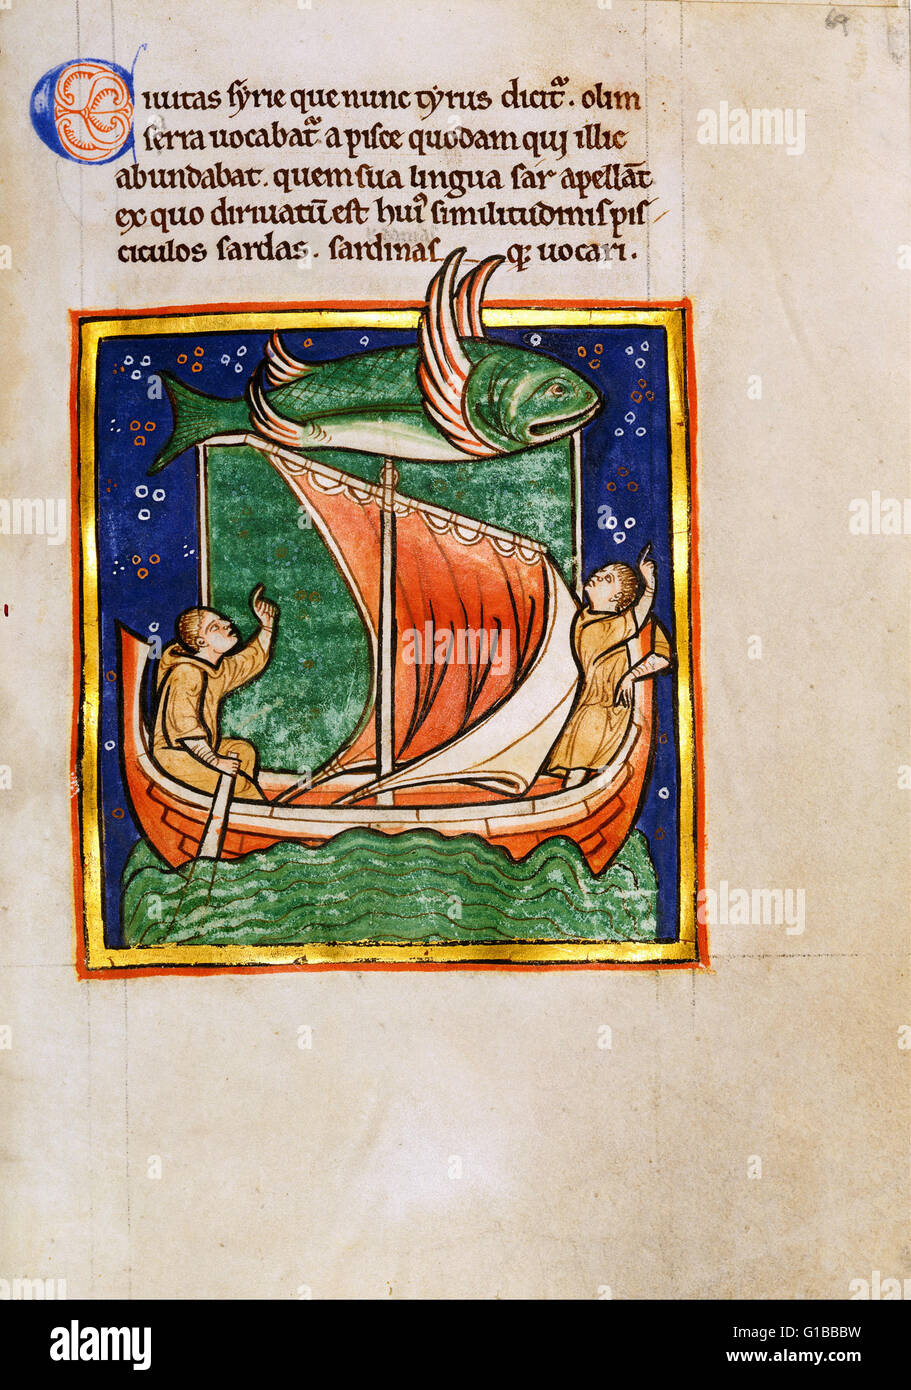 69
Ciuitas syrie que nunc tyrus dicit᷑. olim
serra uocabat᷑ a pisce quodam qui illic
abundabat. quem sua lingua sar apellāt
ex quo diriuatū est hui᷒ similitudinis pis
ciculos sardas. sardinas q; uocari.
alamy
alamy
Image ID: G1BBBW
www.alamy.com